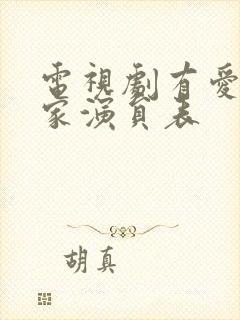 電視劇有愛
家演員表
胡真